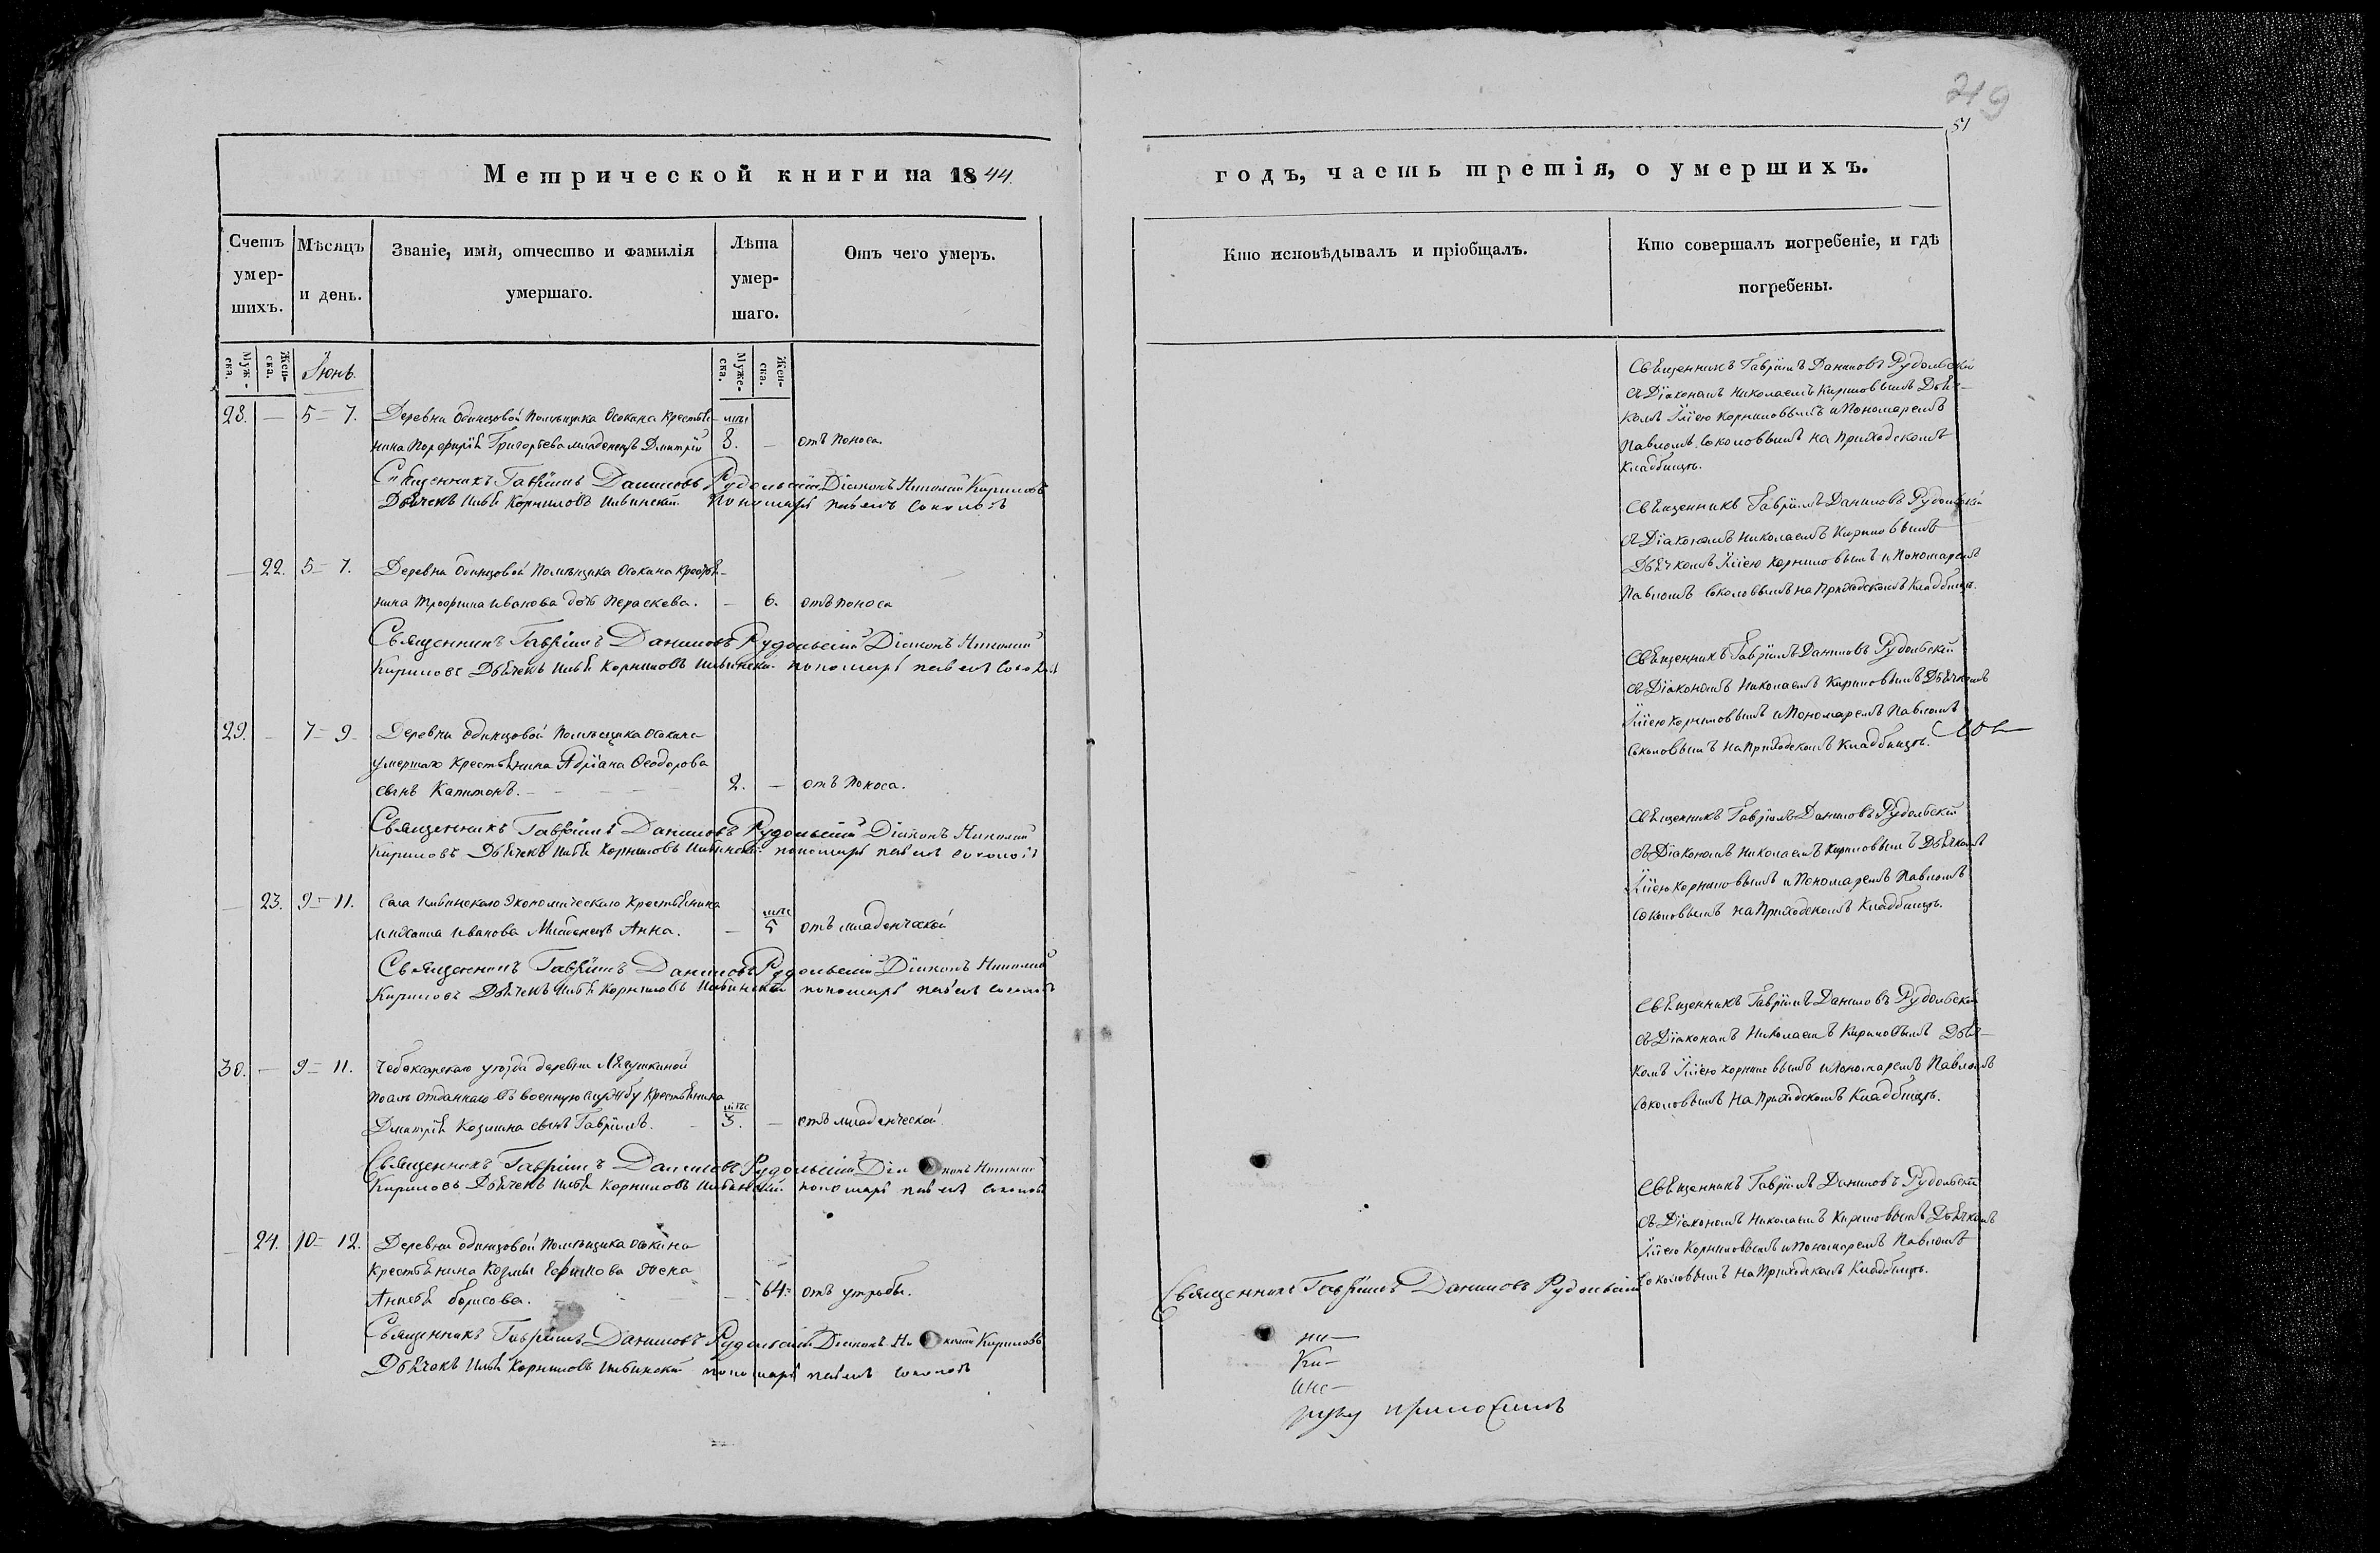 219
51
Метрической книги на 1844.
годъ, часть третія, о умершихъ.
Счетъ умер-шихъ.
Мѣсяцъ и день.
Званіе, имя, отчество и фамилія умершаго.
Лѣта умер-шаго.
Отъ чего умеръ.
Кто исповѣдывалъ и пріобщалъ.
Кто совершалъ погребеніе, и гдѣ погребены.
Муж-ска.
Жен-ска.
Іюнь
Муже-ска.
Жен-ска.
28. — 5 = 7. Деревни Одинцовой Помѣщика Осокина Крестья-
нина Порфирія Григорьева младенецъ Димитрій 8. — отъ поноса.
Священникъ Гавріилъ Даниловъ Рудольскій Діаконъ Николай Кириловъ
Дьячекъ Илья Корниловъ Ивинскій Пономарь Павелъ Соколовъ
Священникъ Гавріилъ Даниловъ Рудольскій
съ Діакономъ Николаемъ Кириловымъ Дьяч-
комъ Ильею Корниловымъ и Пономаремъ
Павломъ Соколовымъ на Приходскомъ
Кладбищѣ.
— 22. 5 = 7. Деревни Одинцовой Помѣщика Осокина Крестья-
нина Трофима Иванова дочь Параскева. — 6. отъ поноса
Священникъ Гавріилъ Даниловъ Рудольскій Діаконъ Николай
Кириловъ Дьячекъ Илья Корниловъ Ивинскій пономарь Павелъ Соколовъ
Священникъ Гавріилъ Даниловъ Рудольскій
съ Діакономъ Николаемъ Кириловымъ
Дьячкомъ Ильею Корниловымъ и Пономаремъ
Павломъ Соколовымъ на Приходскомъ Кладбищѣ.
29. — 7 = 9 Деревни Одинцовой Помѣщика Осокина
умершаго Крестьянина Адріана Ѳеодорова
сынъ Капитонъ. 2. — отъ поноса.
Священникъ Гавріилъ Даниловъ Рудольскій Діаконъ Николай
Кириловъ Дьячекъ Илья Корниловъ Ивинскій пономарь Павелъ Соколовъ
Священникъ Гавріилъ Даниловъ Рудольскій
съ Діакономъ Николаемъ Кириловымъ Дьячкомъ
Ильею Корниловымъ и Пономаремъ Павломъ
Соколовымъ на Приходскомъ Кладбищѣ.
— 23. 9 = 11. Села Ивинскаго Экономическаго Крестьянина
Михаила Иванова Младенецъ Анна. — 5 отъ младенческой
Священникъ Гавріилъ Даниловъ Рудольскій Діаконъ Николай
Кириловъ Дьячекъ Илья Корниловъ Ивинскій пономарь Павелъ Соколовъ
Священникъ Гавріилъ Даниловъ Рудольскій
съ Діакономъ Николаемъ Кириловымъ Дьячкомъ
Ильею Корниловымъ и Пономаремъ Павломъ
Соколовымъ на Приходскомъ Кладбищѣ.
30. — 9 = 11. Чебоксарскаго уѣзда деревни Лягушкиной
отданнаго въ военную службу Крестьянина
Димитрія Козмина сынъ Гавріилъ. 3. — отъ младенческой
Священникъ Гавріилъ Даниловъ Рудольскій Діаконъ Николай
Кириловъ Дьячекъ Илья Корниловъ Ивинскій пономарь Павелъ Соколовъ
Священникъ Гавріилъ Даниловъ Рудольскій
съ Діакономъ Николаемъ Кириловымъ Дьяч-
комъ Ильею Корниловымъ и Пономаремъ Павломъ
Соколовымъ на Приходскомъ Кладбищѣ.
— 24. 10 = 12. Деревни Одинцовой Помѣщика Осокина
Крестьянина Козмы Ефимова жена
Борисова. — 64 отъ утробы.
Священникъ Гавріилъ Даниловъ Рудольскій Діаконъ Николай Кириловъ
Дьячекъ Илья Корниловъ Ивинскій пономарь Павелъ Соколовъ
Священникъ Гавріилъ Даниловъ Рудольскій
Священникъ Гавріилъ Даниловъ Рудольскій
съ Діакономъ Николаемъ Кириловымъ Дьячкомъ
Ильею Корниловымъ и Пономаремъ Павломъ
Соколовымъ на Приходскомъ Кладбищѣ.
руку приложилъ